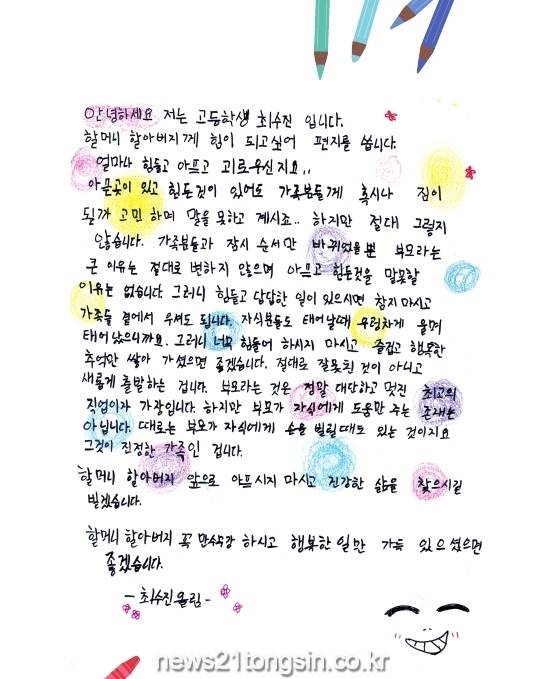 안녕하세요 저는 고등학생 최수진 입니다.
할머니 할아버지께 힘이 되고싶어 편지를 씁니다.
얼마나 힘들고 아프고 괴로우신지요..
아픈곳이 있고 힘든것이 있어도 가족분들께 혹시나 짐이
될까 고민 하며 말을 못하고 계시죠.. 하지만 절대 그렇지
않습니다. 가족분들과 잠시 순서만 바뀌었을 뿐 부모라는
큰 이유는 절대로 변하지 않으며 아프고 힘든것을 말못할
이유는 없습니다. 그러니 힘들고 답답한 일이 있으시면 참지 마시고
가족들 곁에서 우셔도 됩니다. 자식분들도 태어날때 우렁차게 울며
태어났으니까요. 그러니 너무 힘들어 하시지 마시고 즐겁고 행복한
추억만 쌓아 가셨으면 좋겠습니다. 절대로 잘못된 것이 아니고
새롭게 출발하는 겁니다. 부모라는 것은 정말 대단하고 멋진 최고의
직업이자 가장입니다. 하지만 부모가 자식에게 도움만 주는 존재는
아닙니다. 때로는 부모가 자식에게 손을 빌릴때도 있는 것이지요
그것이 진정한 가족인 겁니다.
할머니 할아버지 앞으로 아프시지 마시고 건강한 삶을 찾으시길
빌겠습니다.
할머니 할아버지 꼭 만수무강 하시고 행복한 일만 가득 있으셨으면
좋겠습니다.
- 최수진 올림 -
news21tongsin.co.kr